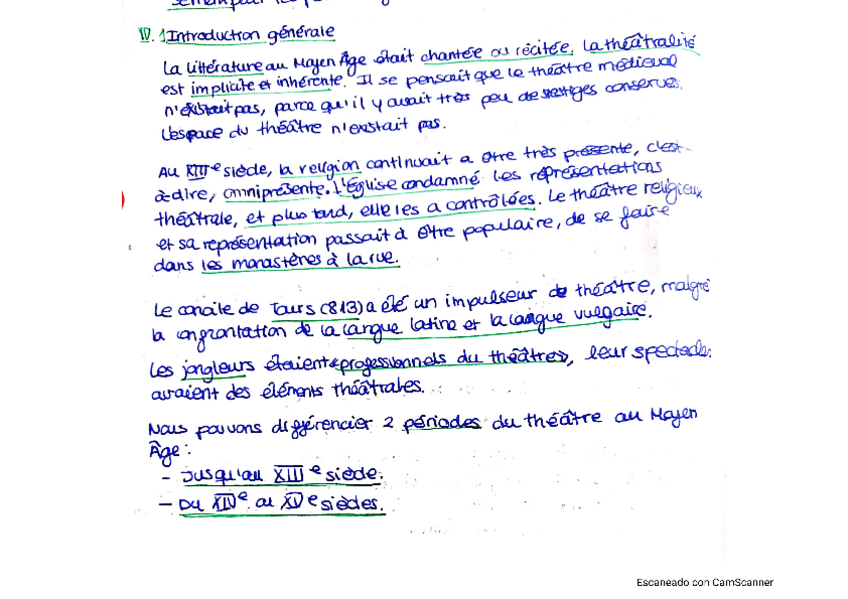 IV. 1 Introduction générale
La littérature au Moyen Âge était chantée ou récitée, la théâtralité
est implicite et inhérente. Il se pensait que le théâtre médieval
n'existait pas, parce qu'il y avait très peu de vestiges conservés.
L'espace du théâtre n'existait pas.
Au XIIIe siède, la religion continuait a être très présente, c'est-
à-dire, omniprésente. L'Église condamné les représentations
théâtrale, et plus tard, elle les a contrôlées. Le théâtre religieux
et sa représentation passait à être populaire, de se faire
dans les monastères à la rue.
Le concile de Tours (813) a été un impulseur de théâtre, malgré
la confrontation de la langue latine et la langue vulgaire.
Les jongleurs étaient professionnels du théâtre, leur spectacle
avaient des éléments théâtrales.
Nous pouvons différencier 2 périodes du théâtre au Moyen
Âge:
- Jusqu'au XIIIe siède.
- Du XIVe au XVe sièdes.
Escaneado con CamScanner